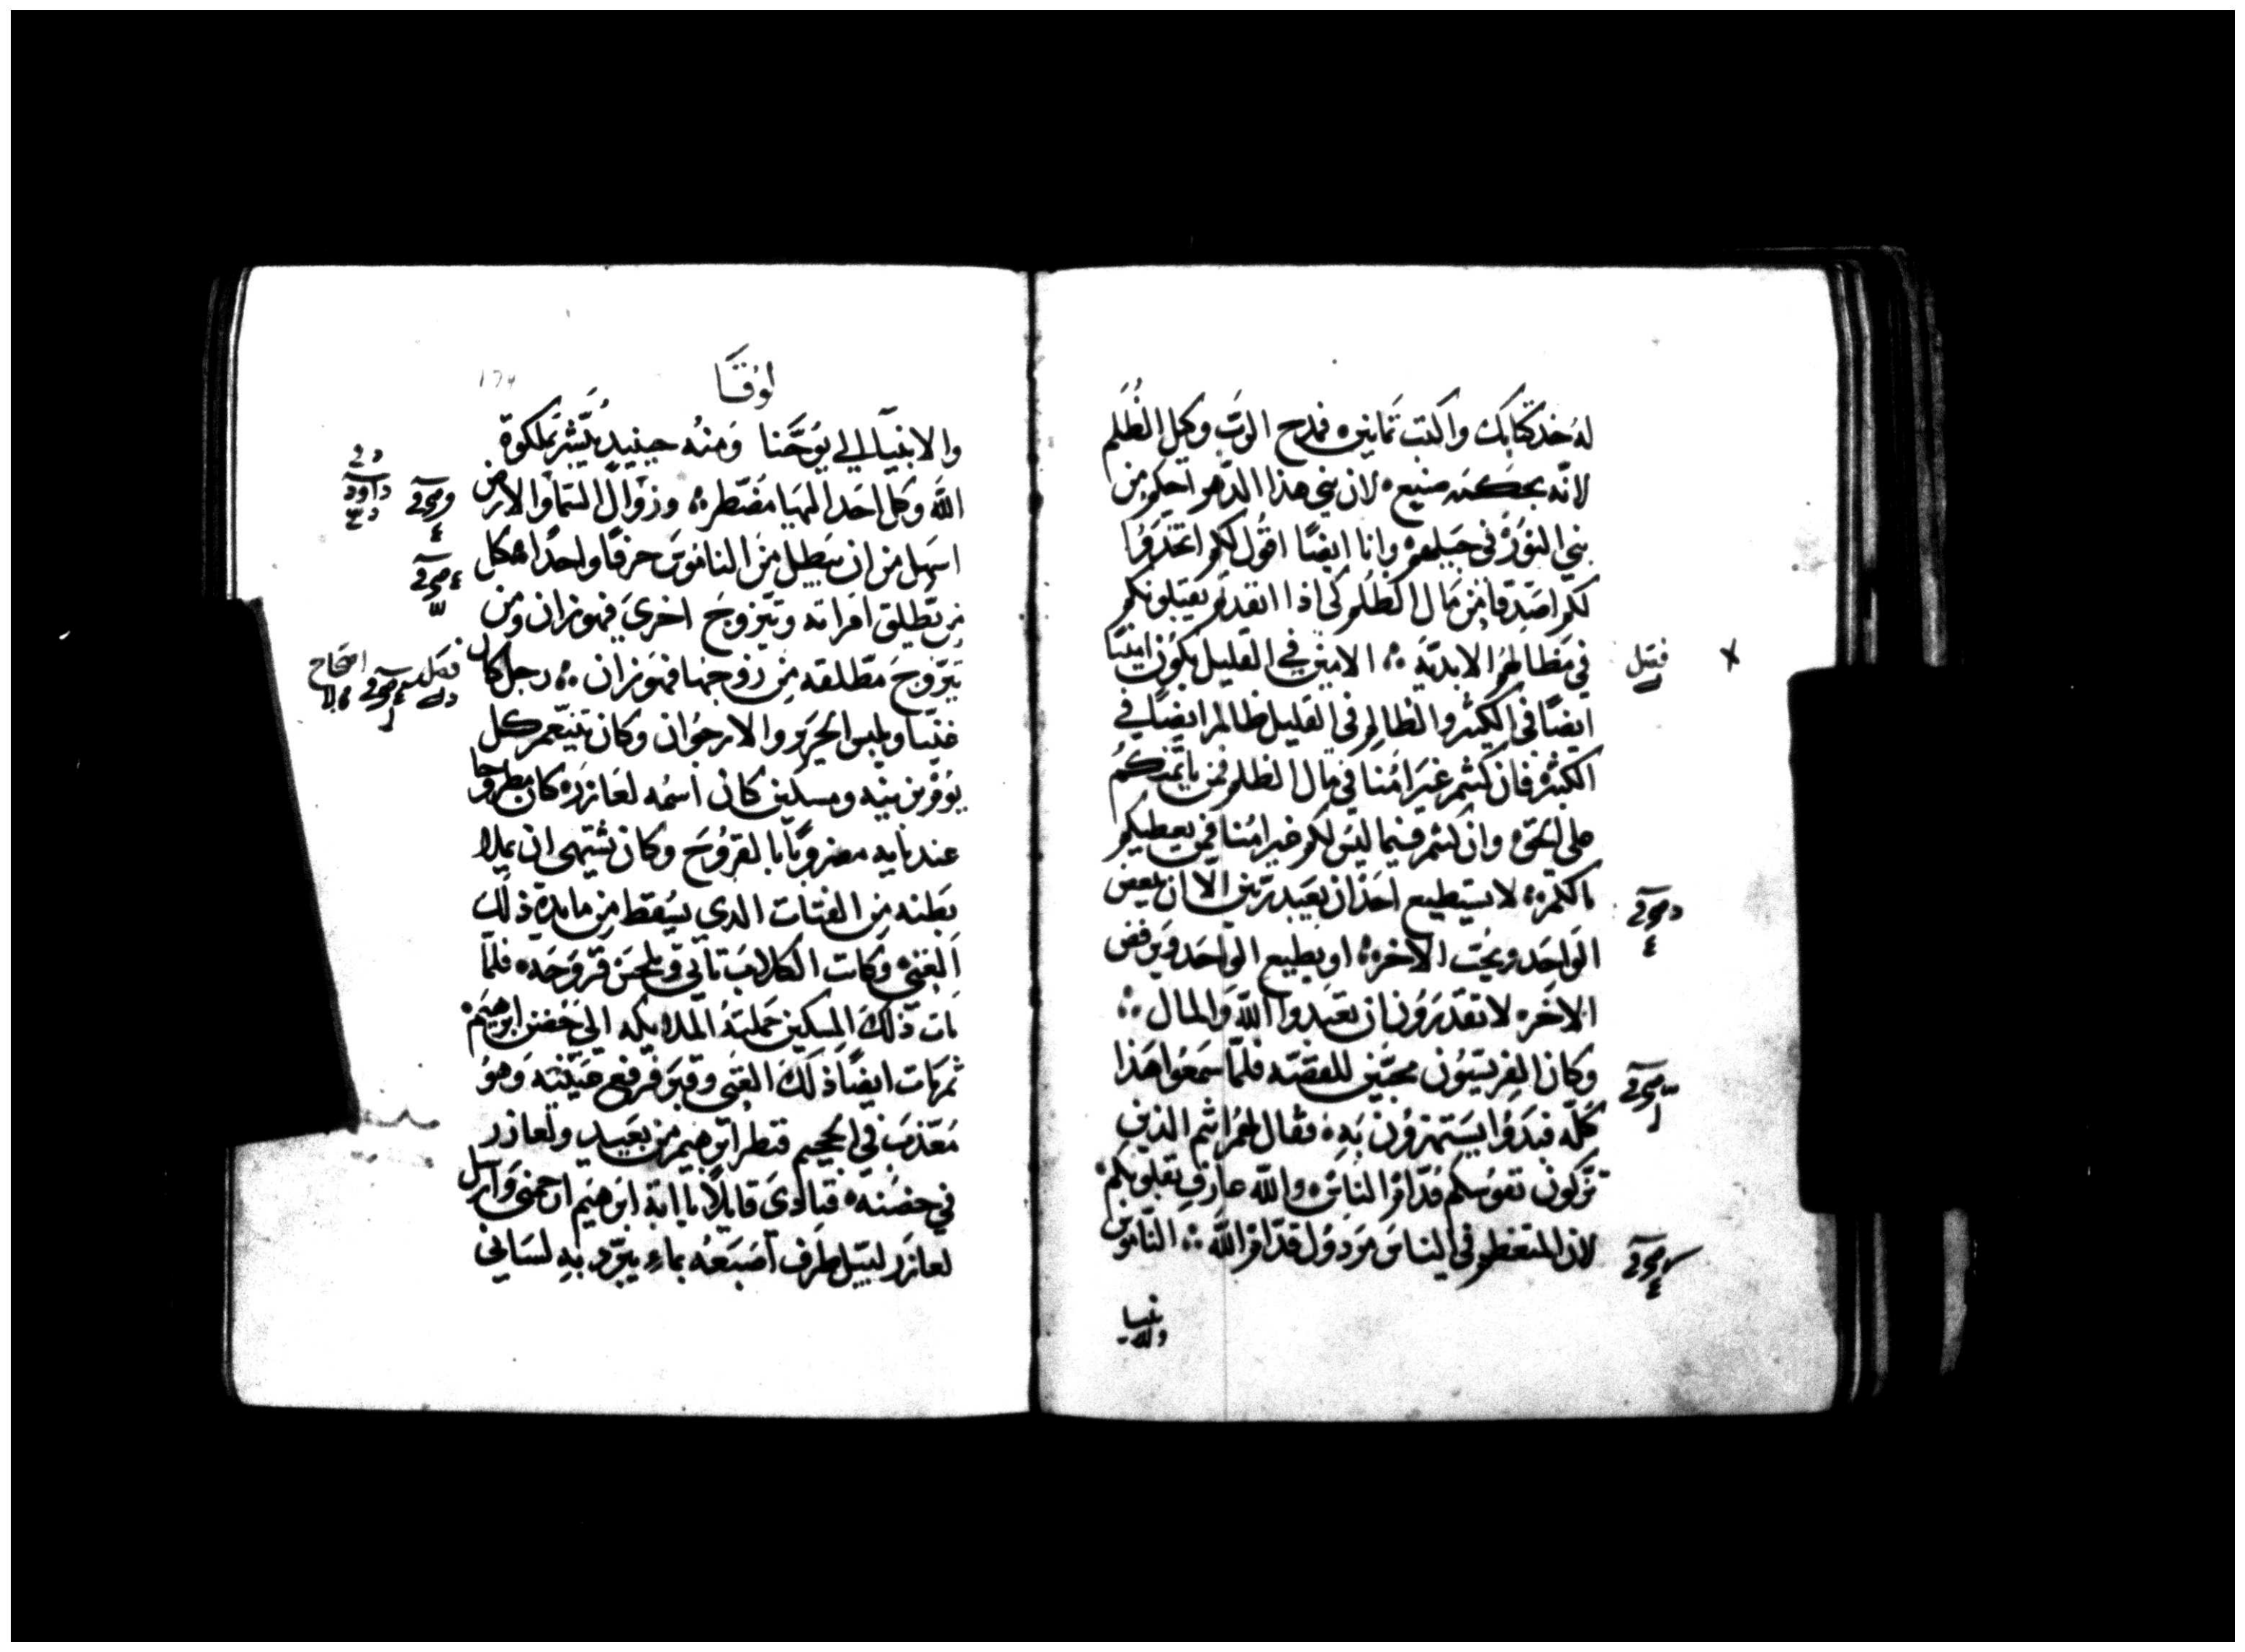 له خد كتابك واكتب تمانين ٥ فمدح الرب وكيل الظلم
لانه بحكمه صنيع ٥ لان بني هذا الدهر احكم من
بني النور في جيلهم ٥ وانا ايضًا اقول لكم اتخدوا
لكم اصدقا من مال الظلم لكي اذا انفدتم يقبلونكم
في مظالهم الابدية ∴ الامين في القليل يكون امينًا
ايضًا في الكثير والظالم في القليل ظالم ايضًا في
الكثير ٥ فان كنتم غير امنا في مال الظلم فمن ياتمنكم
على الحق ٥ وان كنتم فيما ليس لكم غير امنا فمن يعطيكم
مالكم ٥ لا يستطيع احد ان يعبد ربين الا ان يبغض
الواحد ويحب الاخر ٥ او يطيع الواحد ويرفض
الاخر ٥ لا تقدرون ان تعبدوا الله والمال ∴
وكان الفريسيون محبين للفضه فلما سمعوا هذا
كله فبدوا يستهزون به ٥ فقال لهم انتم الذين
تزكون نفوسكم قدام الناس ٥ والله عارف بقلوبكم ٥
لان المتعظم في الناس مردول قدام الله ∴ الناموس
فصل
لوقا
والانبيا الى يوحنا ومنه حينيد يبشر بملكوة
الله وكل احد اليها مضطر ٥ وزوال السما والارض
اسهل من ان يبطل من الناموس حرفا واحدًا ٥ كل
من يطلق امراته ويتزوج اخرى فهو زان ومن
يتزوج مطلقه من زوجها فهو زان ∴ رجل كان
غنيا ويلبس الحرير والارجوان وكان يتنعم كل
يوم ويزينه ومسكين كان اسمه لعازر ٥ كان مطروحا
عند بابه مضروبًا بالقروح وكان يشتهي ان يملا
بطنه من الفتات الدي يسقط من مايدة ذلك
الغني ٥ وكانت الكلاب تاتي وتلحس قروحه ٥ فلما
مات ذلك المسكين حملته الملايكه الى حضن ابرهيم ٥
ثم مات ايضًا ذلك الغني وقبر فرفع عينيه وهو
معذب في الجحيم فنظر ابرهيم من بعيد ولعازر
في حضنه ٥ فنادى قايلًا يا ابة ابرهيم ارحمني وارسل
لعازر ليبل طرف اصبعه بماء يبرد به لساني